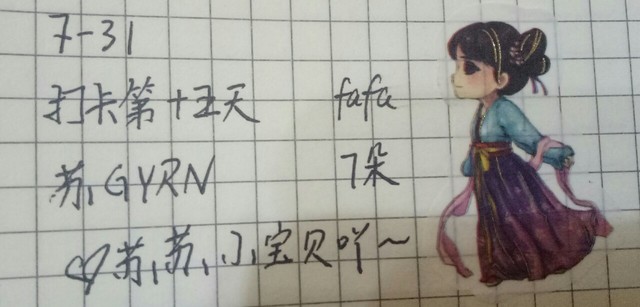 7-31
打卡第十五天 fafa
苏GYRN 7朵
♡苏苏小宝贝吖~